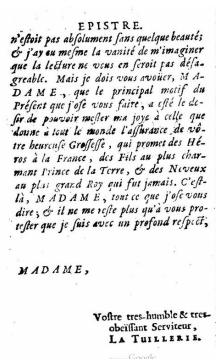 EPISTRE.
n'estoit pas absolument sans quelque beauté;
& j'ay eu mesme la vanité de m'imaginer
que la lecture ne vous en seroit pas désa-
greable. Mais je dois vous avoüer, MA-
DAME, que le principal motif du
Présent que j'ose vous faire, a esté le de-
sir de pouvoir mesler ma joye à celle que
donne à tout le monde l'assurance de vô-
tre heureuse Grossesse, qui promet des Hé-
ros à la France, des Fils au plus char-
mant Prince de la Terre, & des Neveux
au plus grand Roy qui fut jamais. C'est-
là, MADAME, tout ce que j'ose vous
dire; & il ne me reste plus qu'à vous pro-
tester que je suis avec un profond respect,
MADAME,
Vostre tres-humble & tres-
obeïssant Serviteur,
LA TUILLERIE.
Google